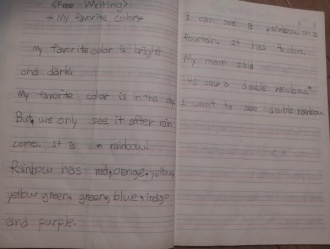 <Free Writing>
My favorite color
My favorite color is bright
and dark.
My favorite color is in the sky
But, we only see it after rain
comes. It is in rainbow.
Rainbow has red, orenge, yellow,
yellow green, green, blue, indigo
and purple.
I can see a rainbow in a
fountain. It has 8colors.
My mom said
"I saw a double rainbow".
I want to see double rainbow